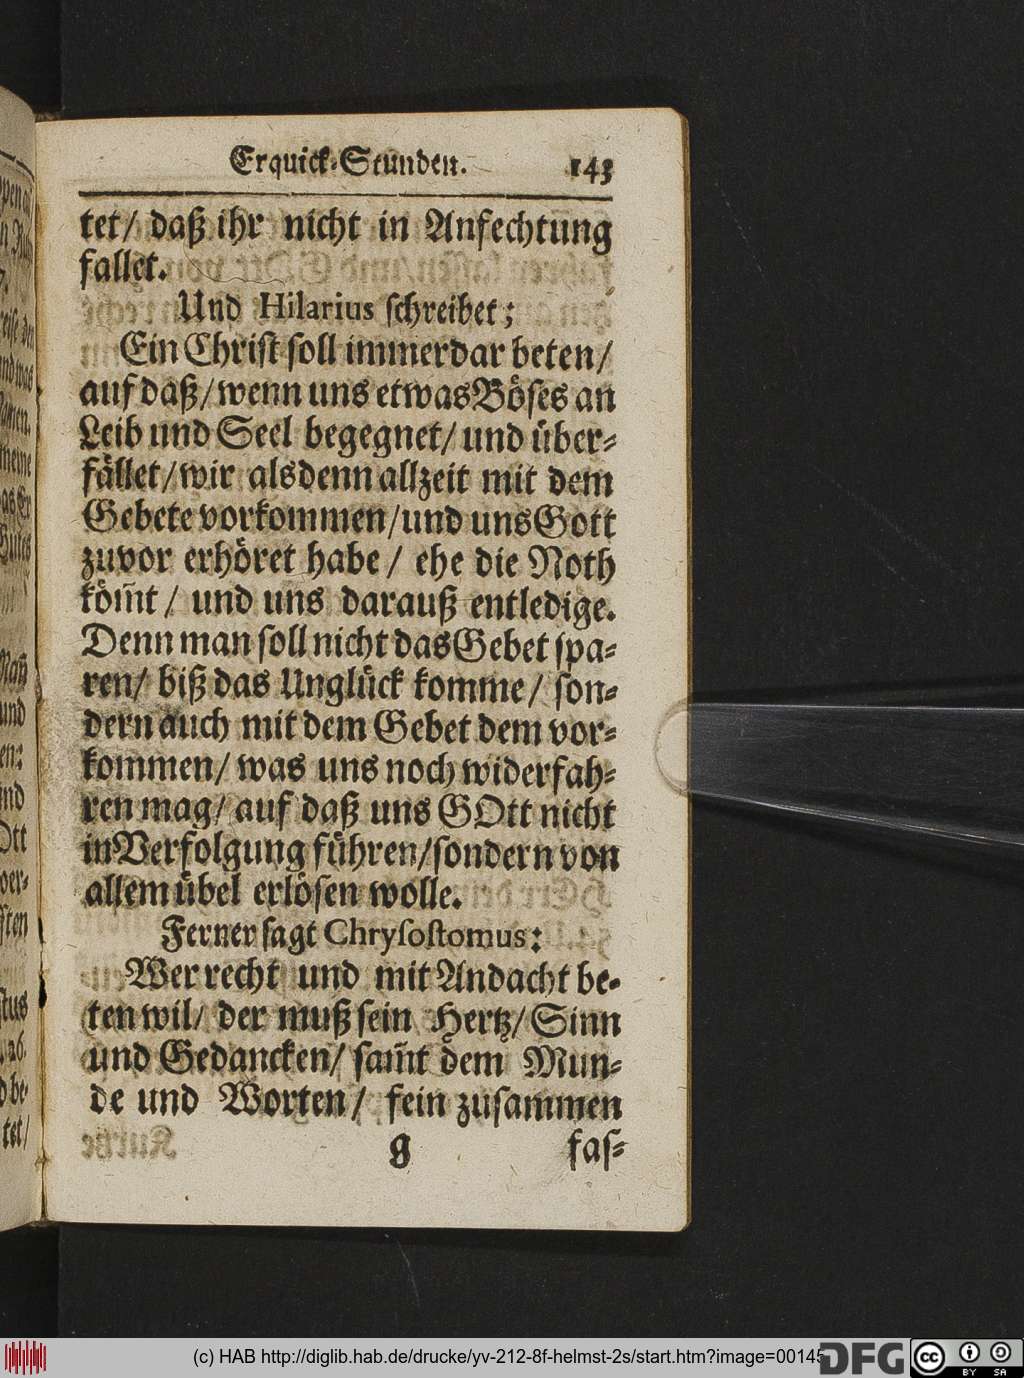 Erquick-Stunden. 143
tet/ daß ihr nicht in Anfechtung
fallet.
Und Hilarius schreibet;
Ein Christ soll immerdar beten/
auf daß/ wenn uns etwas Böses an
Leib und Seel begegnet/ und über-
fället/ wir alsdenn allzeit mit dem
Gebete vorkommen/ und uns Gott
zuvor erhöret habe/ ehe die Noth
köm̃t/ und uns darauß entledige.
Denn man soll nicht das Gebet spa-
ren/ biß das Unglück komme/ son-
dern auch mit dem Gebet dem vor-
kommen/ was uns noch widerfah-
ren mag/ auf daß uns GOtt nicht
in Verfolgung führen/ sondern von
allem übel erlösen wolle.
Ferner sagt Chrysostomus:
Wer recht und mit Andacht be-
ten wil/ der muß sein Hertz/ Sinn
und Gedancken/ sam̃t dem Mun-
de und Worten/ fein zusammen
g fas-
(c) HAB http://diglib.hab.de/drucke/yv-212-8f-helmst-2s/start.htm?image=00145
DFG
cc BY SA